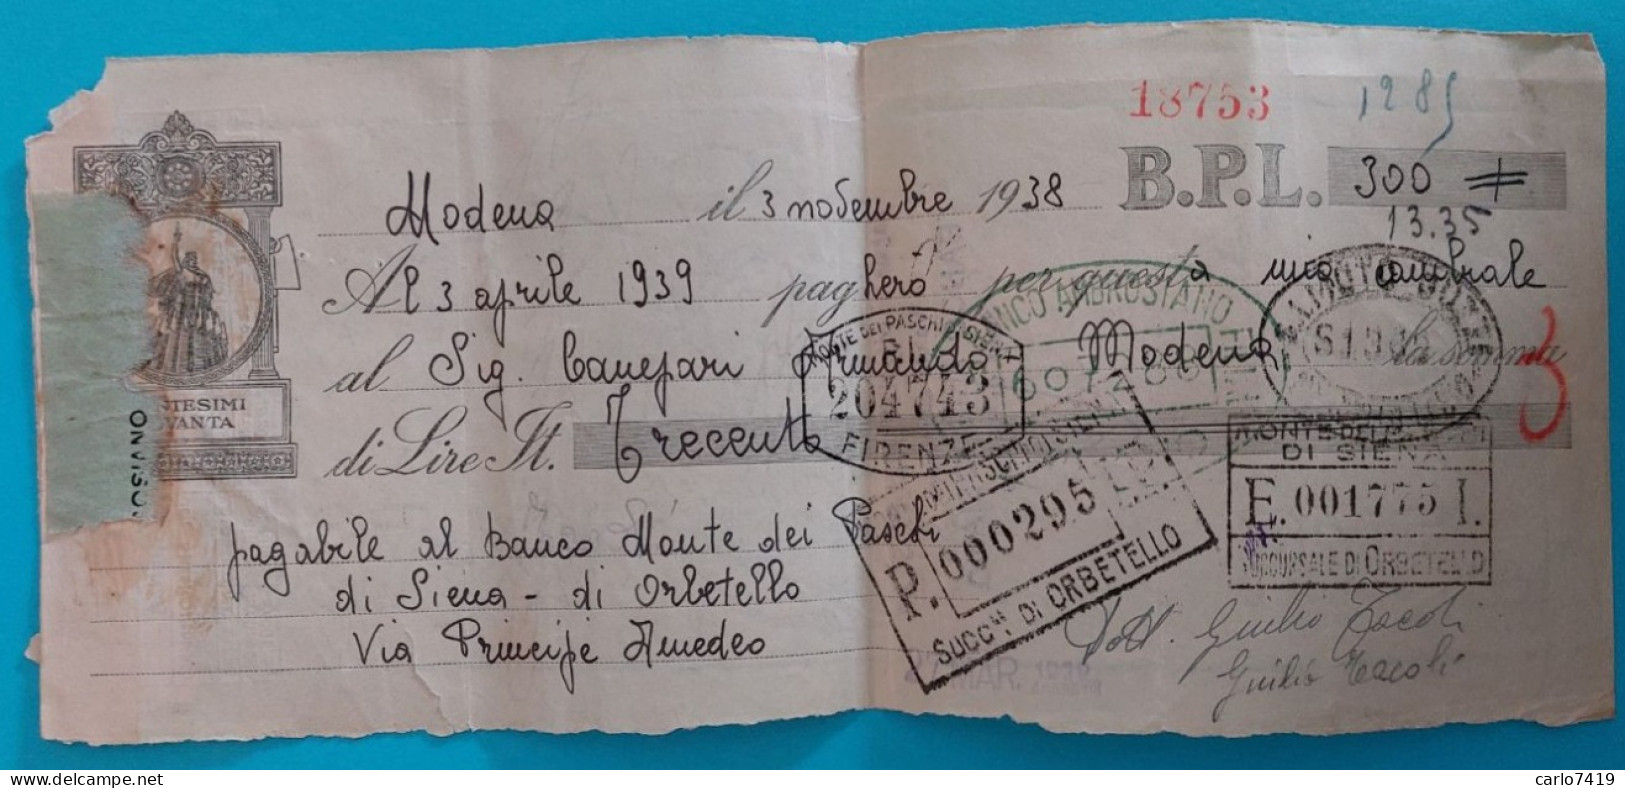 18753
1285
Modena il 3 novembre 1938 B.P.L. 300
13.35
Al 3 aprile 1939 pagherò per questa mia cambiale
al Sig. Canepari Armando Modena la somma
di Lire It. Trecento
pagabile al Banco Monte dei Paschi
di Siena - di Orbetello
Via Principe Amedeo
NTESIMI
VANTA
MONTE DEI PASCHI DI SIENA
204743
FIRENZE
BANCO AMBROSIANO
P. 000295
SUCC. DI ORBETELLO
MONTE DEI
DI SIENA
E. 001775 I.
SUCCURSALE DI ORBETELLO
3
Dott. Giulio Tacoli
Giulio Tacoli
www.delcampe.net
carlo7419